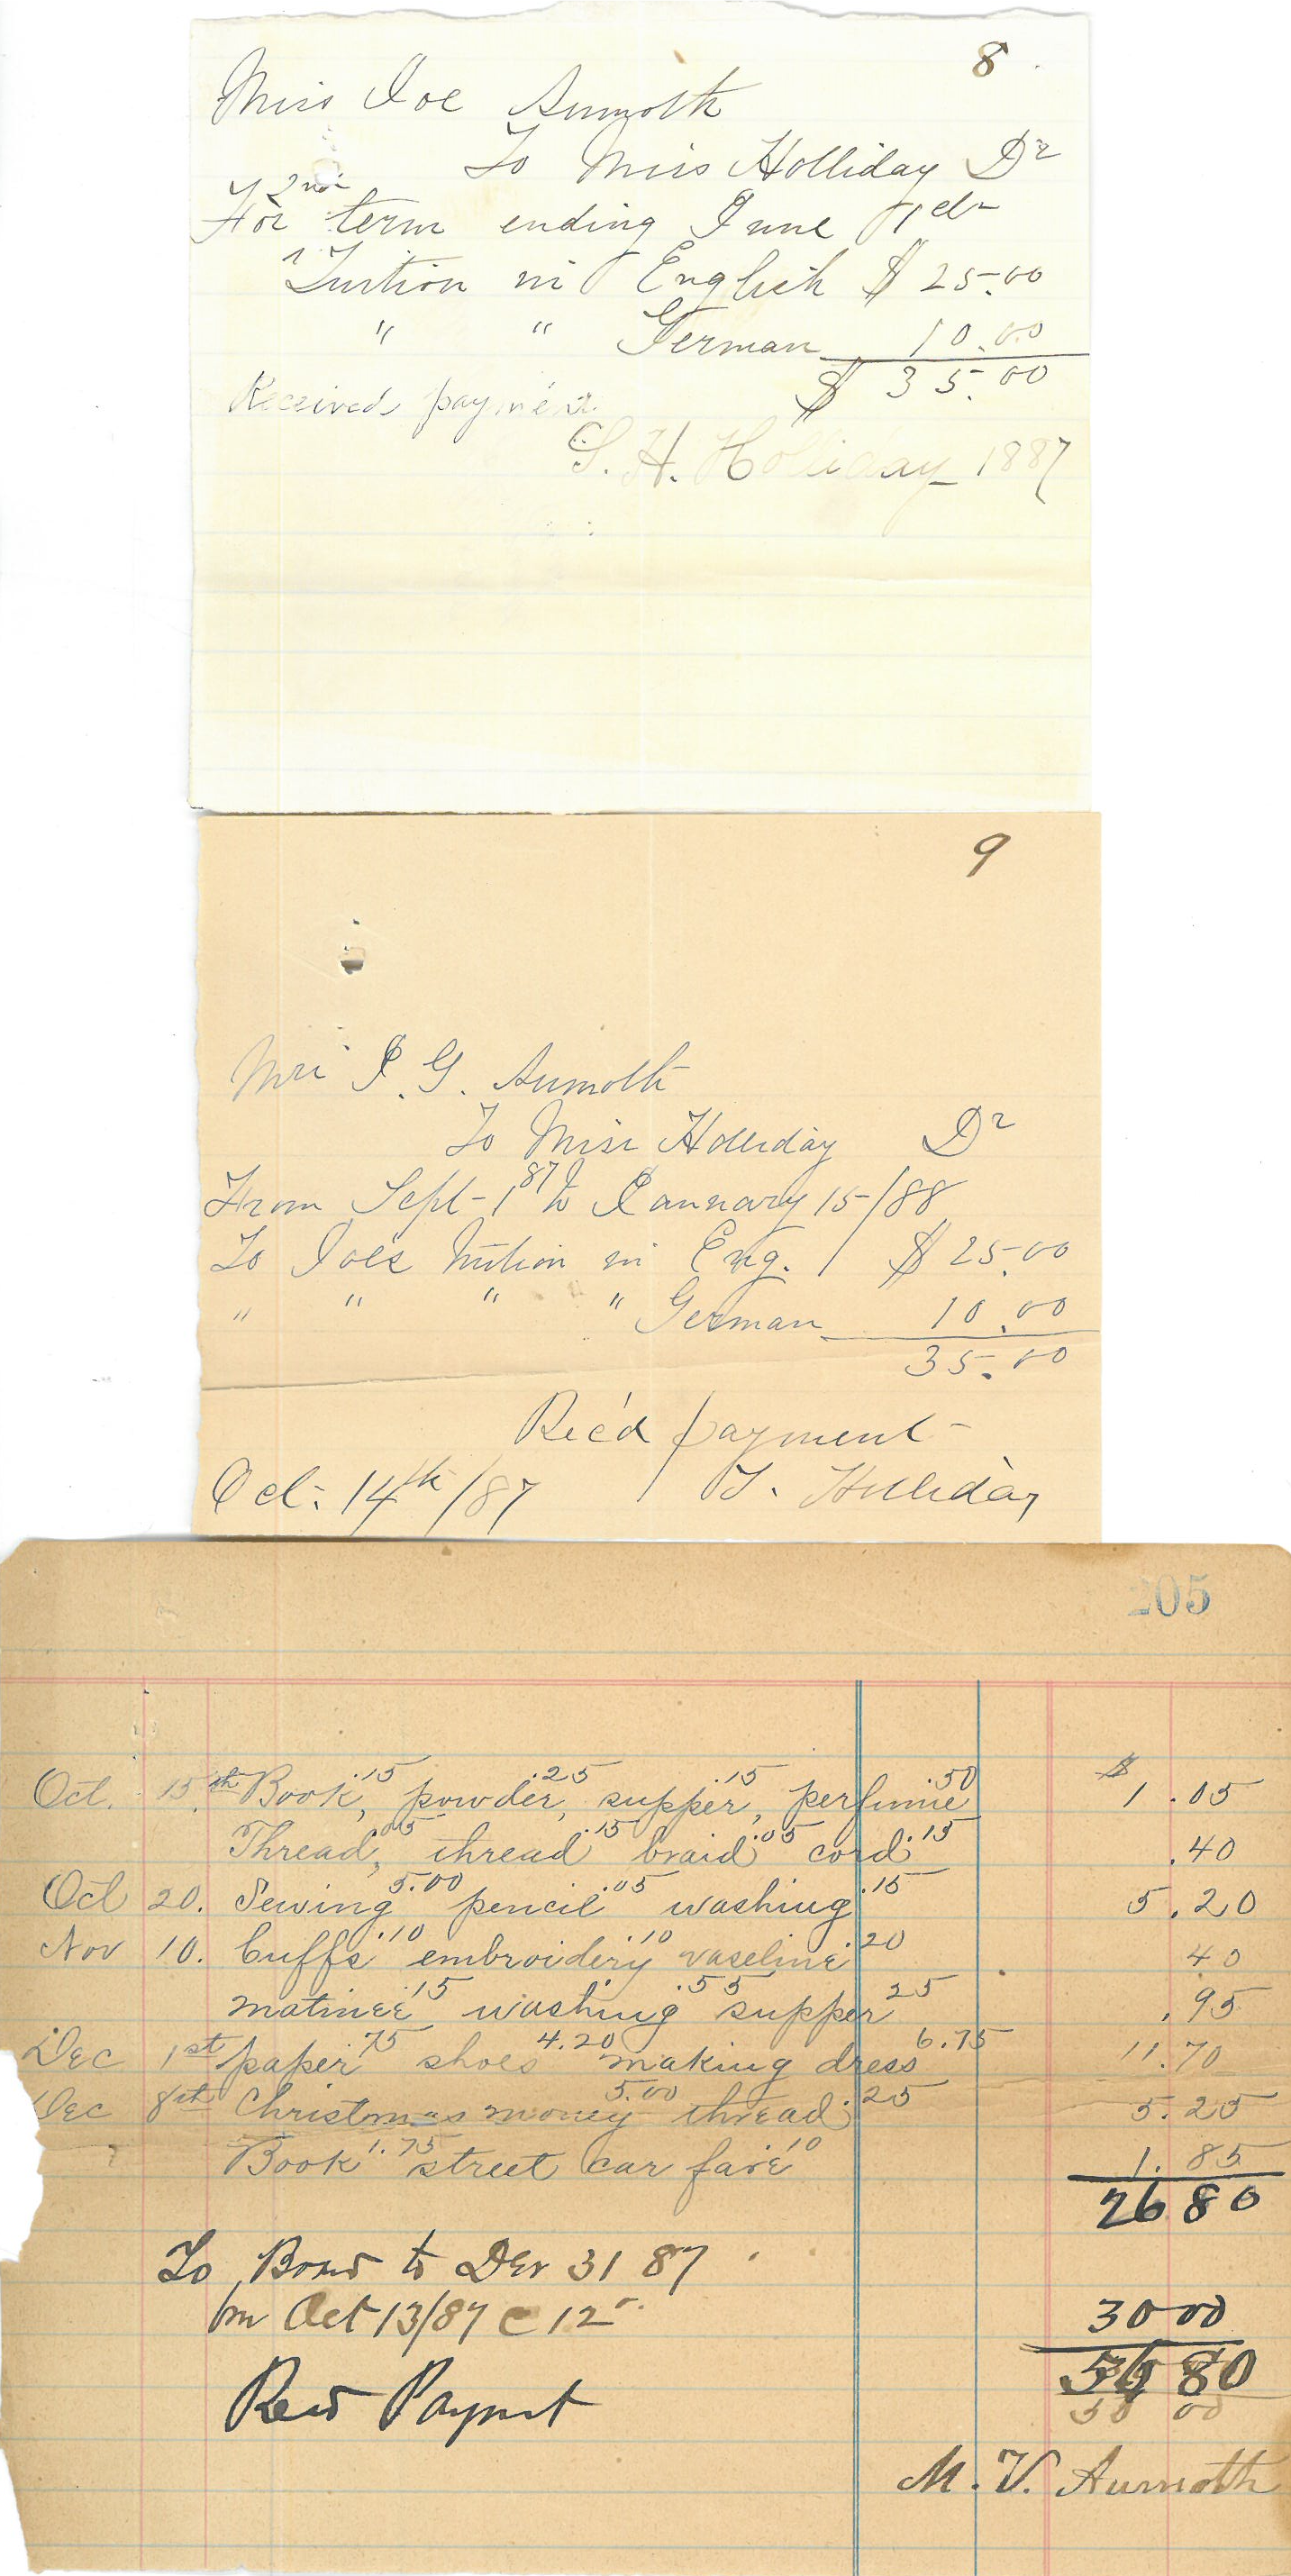 8
Miss Joe Aumoth
To Miss Holliday Dr
2nd
For term ending June 1st
Tuition in English $ 25.00
" " German 10.00
$ 35.00
Received payment
S. H. Holliday 1887
9
Mrs J. G. Aumoth
To Miss Holliday Dr
From Sept 1 87 to January 15/88
To Joes tuition in Eng. $ 25.00
" " " " German 10.00
35.00
Rec'd payment
Oct. 14th/87 S. Holliday
205
Oct. 15th Book, .15 powder, .25 supper, .15 perfume .50 $ 1.05
Thread, .05 thread .15 braid .05 cord .15 .40
Oct 20. Sewing 5.00 pencil .05 washing .15 5.20
Nov 10. Cuffs .10 embroidery .10 vaseline 20 40
matinee .15 washing .55 supper 25 .95
Dec 1st paper 75 shoes 4.20 making dress 6.75 11.70
Dec 8th Christmas money 5.00 thread .25 5.25
Book 1.75 street car fare 10 1.85
26 80
To Board to Dec 31 87
fm Oct 13/87 @ 12 30 00
56 80
Recd Paymt
M. V. Aumoth